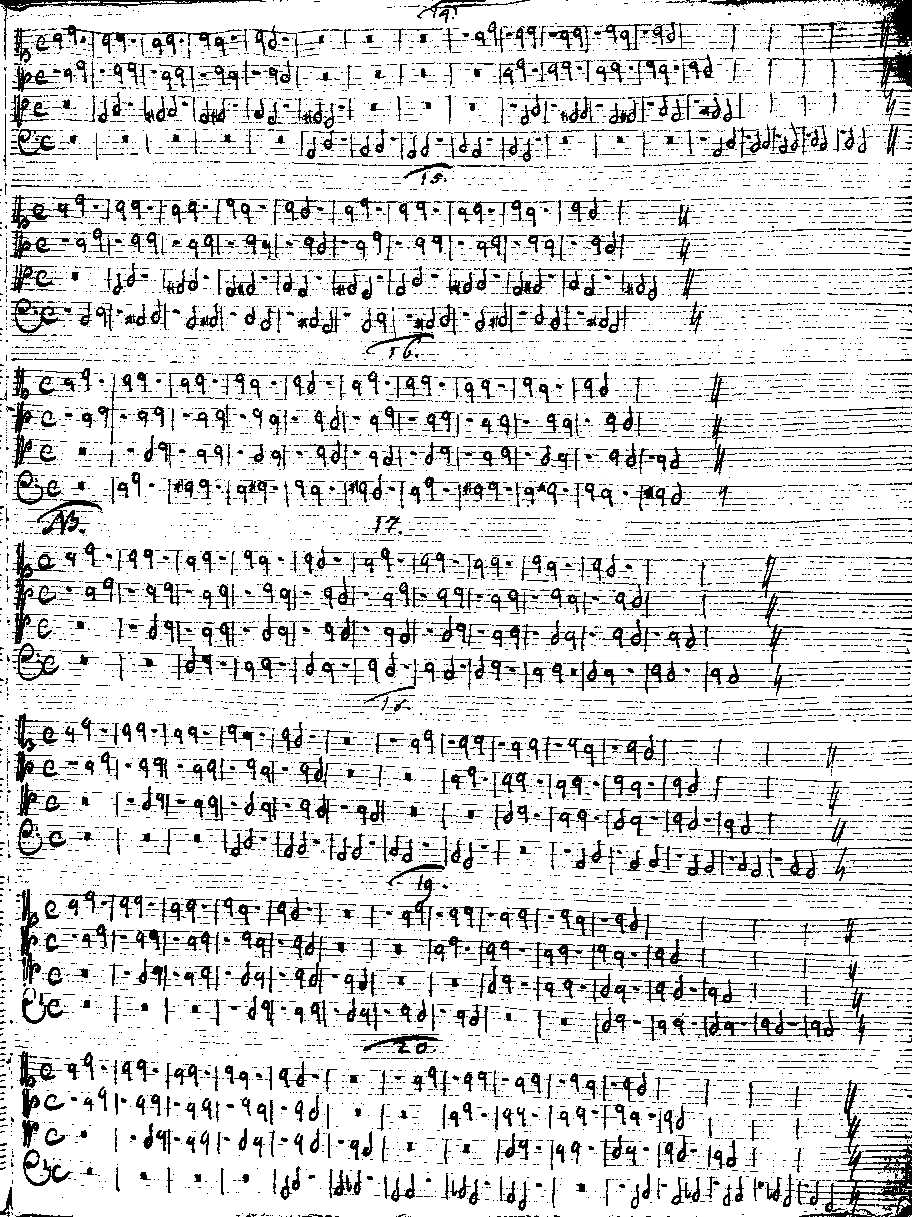 14.
15.
16.
NB. 17.
18.
19.
20